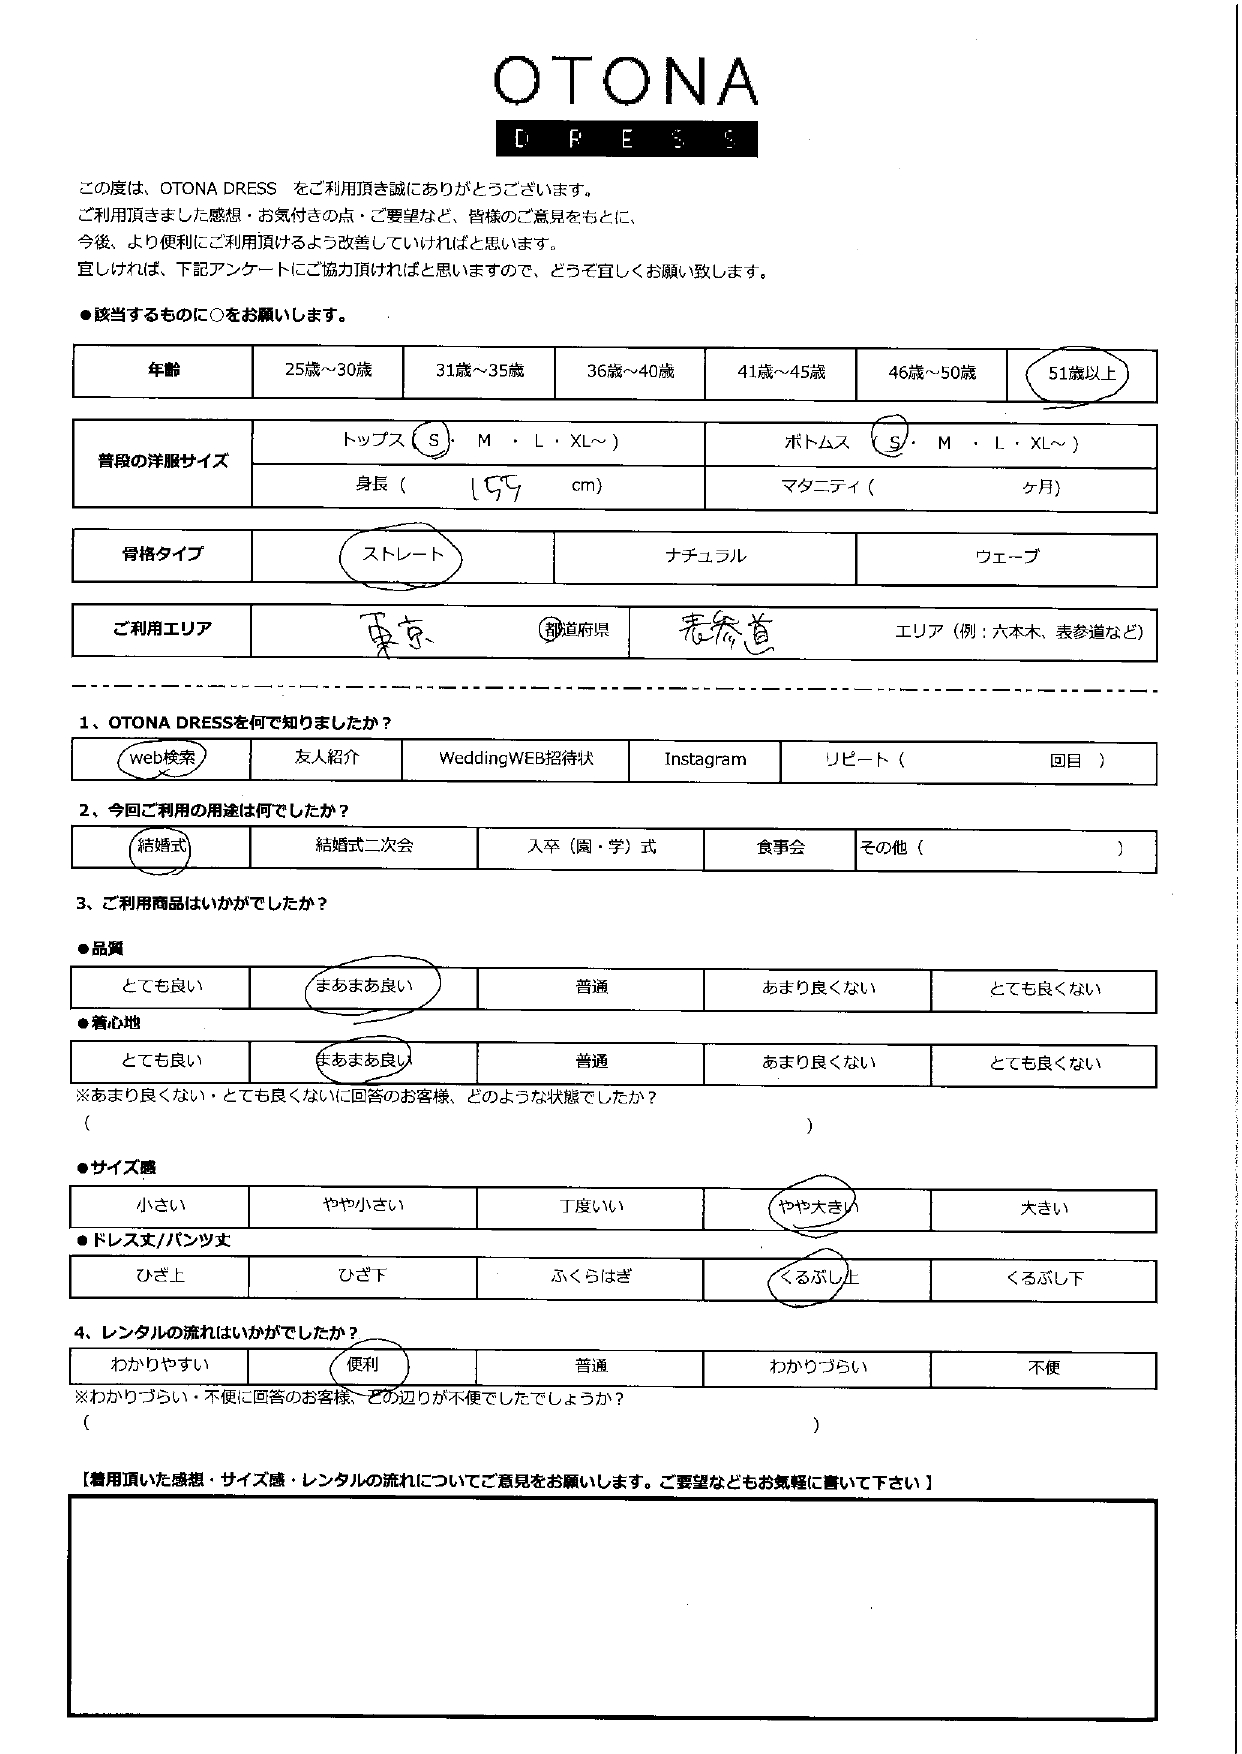 OTONA
DRESS
この度は、OTONA DRESS をご利用頂き誠にありがとうございます。
ご利用頂きました感想・お気付きの点・ご要望など、皆様のご意見をもとに、
今後、より便利にご利用頂けるよう改善していければと思います。
宜しければ、下記アンケートにご協力頂ければと思いますので、どうぞ宜しくお願い致します。
●該当するものに○をお願いします。
年齢 25歳～30歳 31歳～35歳 36歳～40歳 41歳～45歳 46歳～50歳 51歳以上
普段の洋服サイズ トップス ( S ・ M ・ L ・ XL～ ) ボトムス ( S ・ M ・ L ・ XL～ )
身長 ( 155 cm) マタニティ ( ヶ月)
骨格タイプ ストレート ナチュラル ウェーブ
ご利用エリア 東京 都道府県 表参道 エリア（例：六本木、表参道など）
1、OTONA DRESSを何で知りましたか？
web検索 友人紹介 WeddingWEB招待状 Instagram リピート ( 回目 )
2、今回ご利用の用途は何でしたか？
結婚式 結婚式二次会 入卒（園・学）式 食事会 その他 ( )
3、ご利用商品はいかがでしたか？
●品質
とても良い まあまあ良い 普通 あまり良くない とても良くない
●着心地
とても良い まあまあ良い 普通 あまり良くない とても良くない
※あまり良くない・とても良くないに回答のお客様、どのような状態でしたか？
( )
●サイズ感
小さい やや小さい 丁度いい やや大きい 大きい
●ドレス丈/パンツ丈
ひざ上 ひざ下 ふくらはぎ くるぶし上 くるぶし下
4、レンタルの流れはいかがでしたか？
わかりやすい 便利 普通 わかりづらい 不便
※わかりづらい・不便に回答のお客様、どの辺りが不便でしたでしょうか？
( )
【着用頂いた感想・サイズ感・レンタルの流れについてご意見をお願いします。ご要望などもお気軽に書いて下さい 】